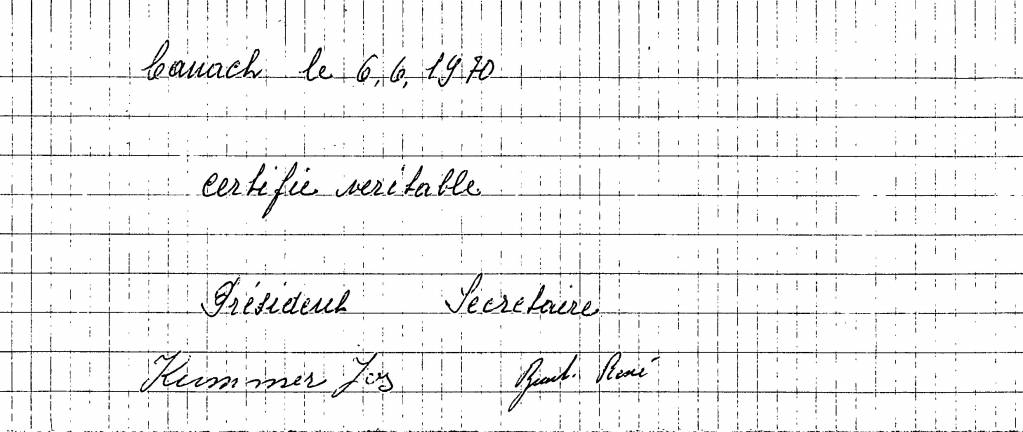 Canach le 6.6.1970
certifié veritable
Président Secretaire
Kummer Jos René